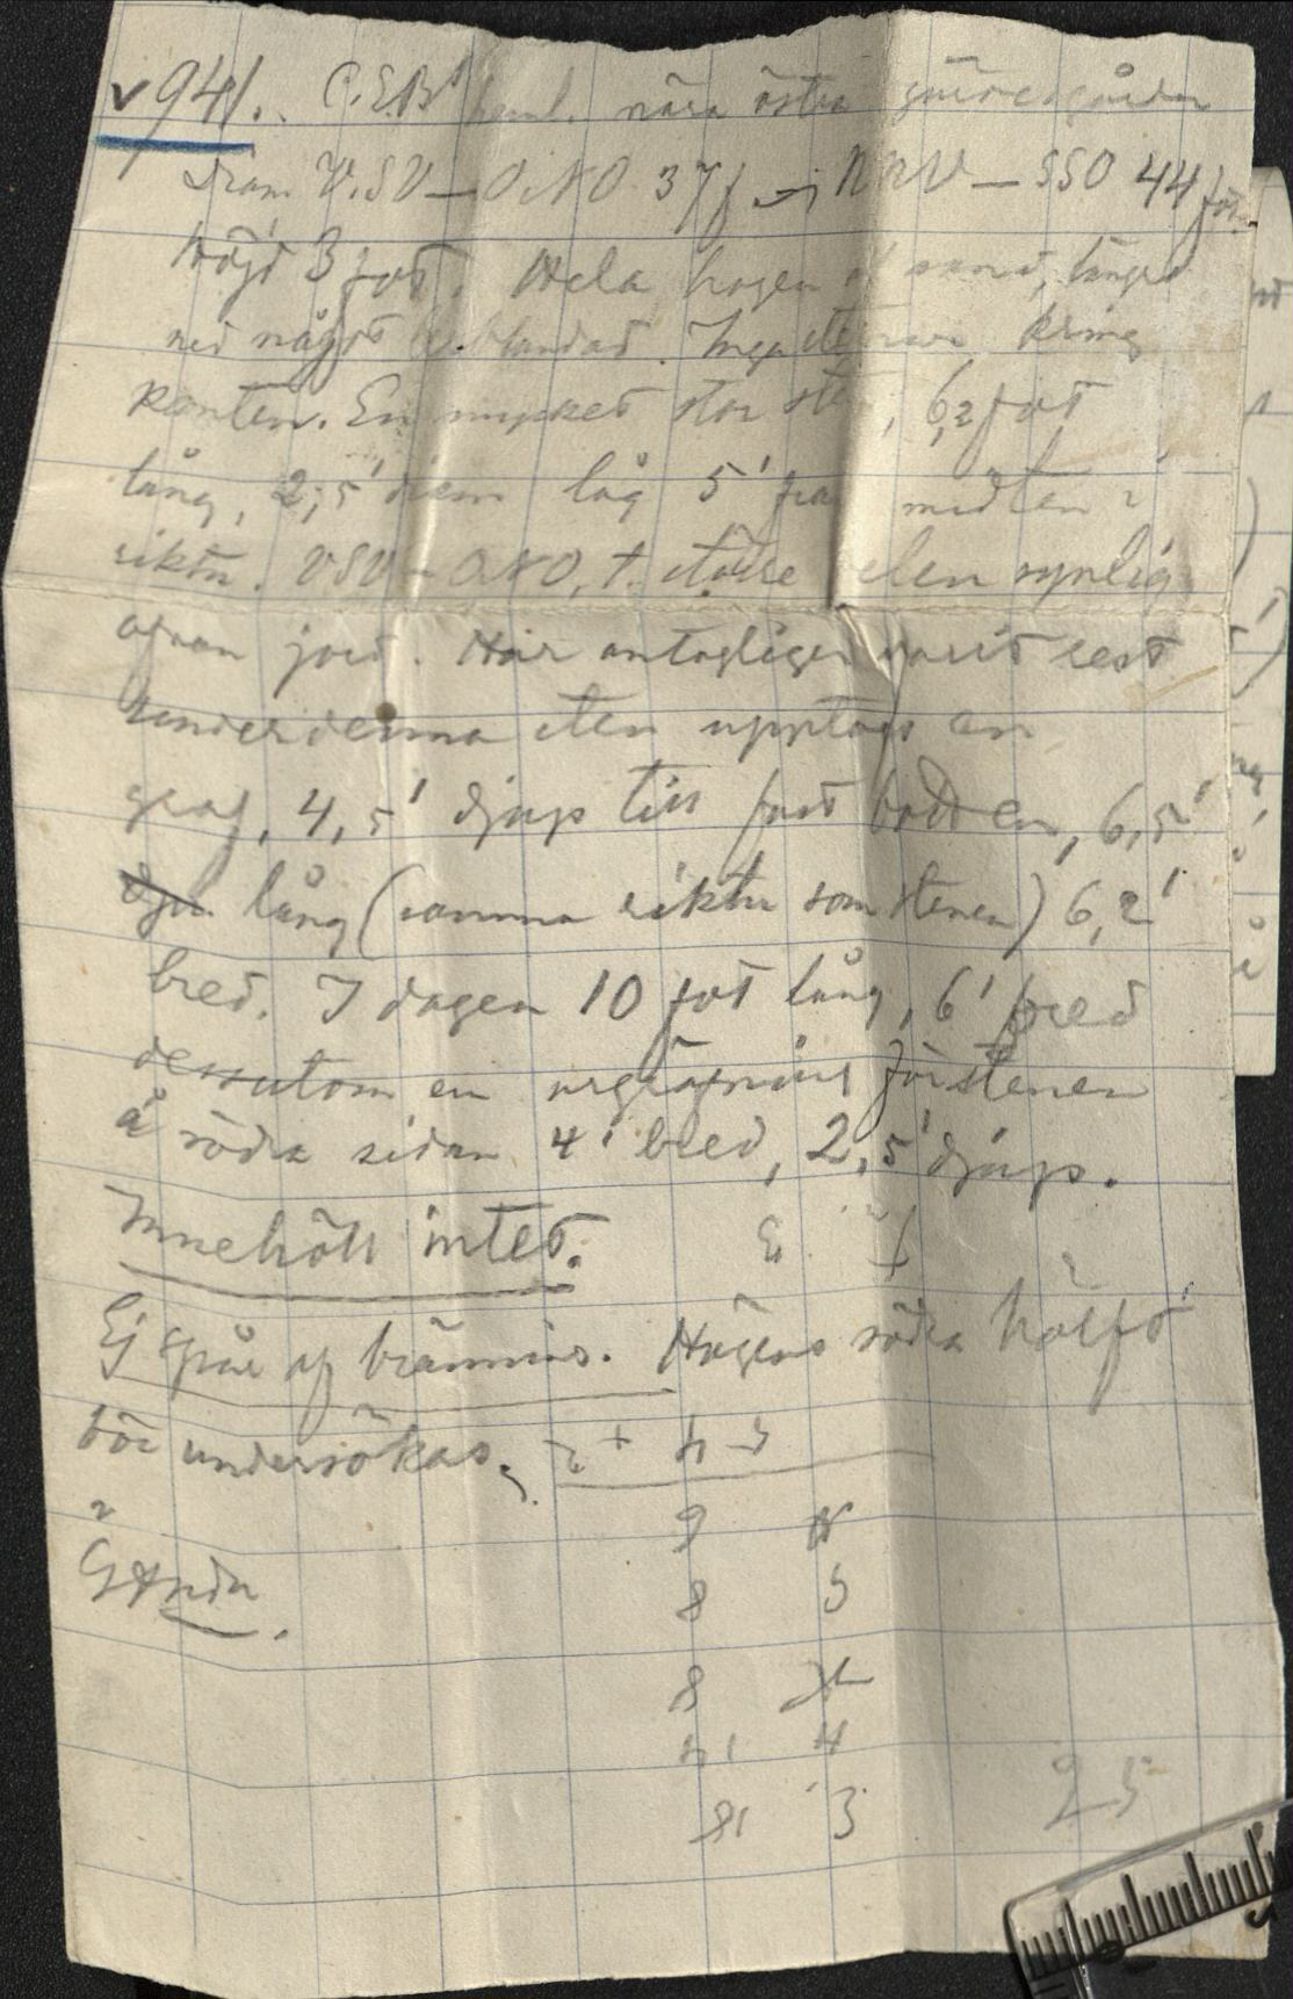 v 941. C.E.Bs haml. nära östra gärdesgården
Diam. V.SV–ONO 37 f. NNV–SSO 44 fot.
Höjd 3 fot. Hela högen af sand, längst
ned något uppblandad. Inga stenar kring
kanten. En mycket stor sten, 6,2 fot
lång, 2,5' diam låg 5' från midten i
riktn. VSV–ONO, t. större delen synlig
ofvan jord. Har antagligen varit rest
Under denna sten upptogs en
graf, 4,5' djup till fast botten, 6,5'
dju lång (samma riktn som stenen) 6,2'
bred. I dagen 10 fot lång, 6' bred
dessutom en urgräfning för stenen
å södra sidan 4' bred, 2,5' djup.
Innehöll intet.
Ej spår af bränning. Högens södra hälft
bör undersökas.
G Anda.
9
8 5
8
4
81 3
25